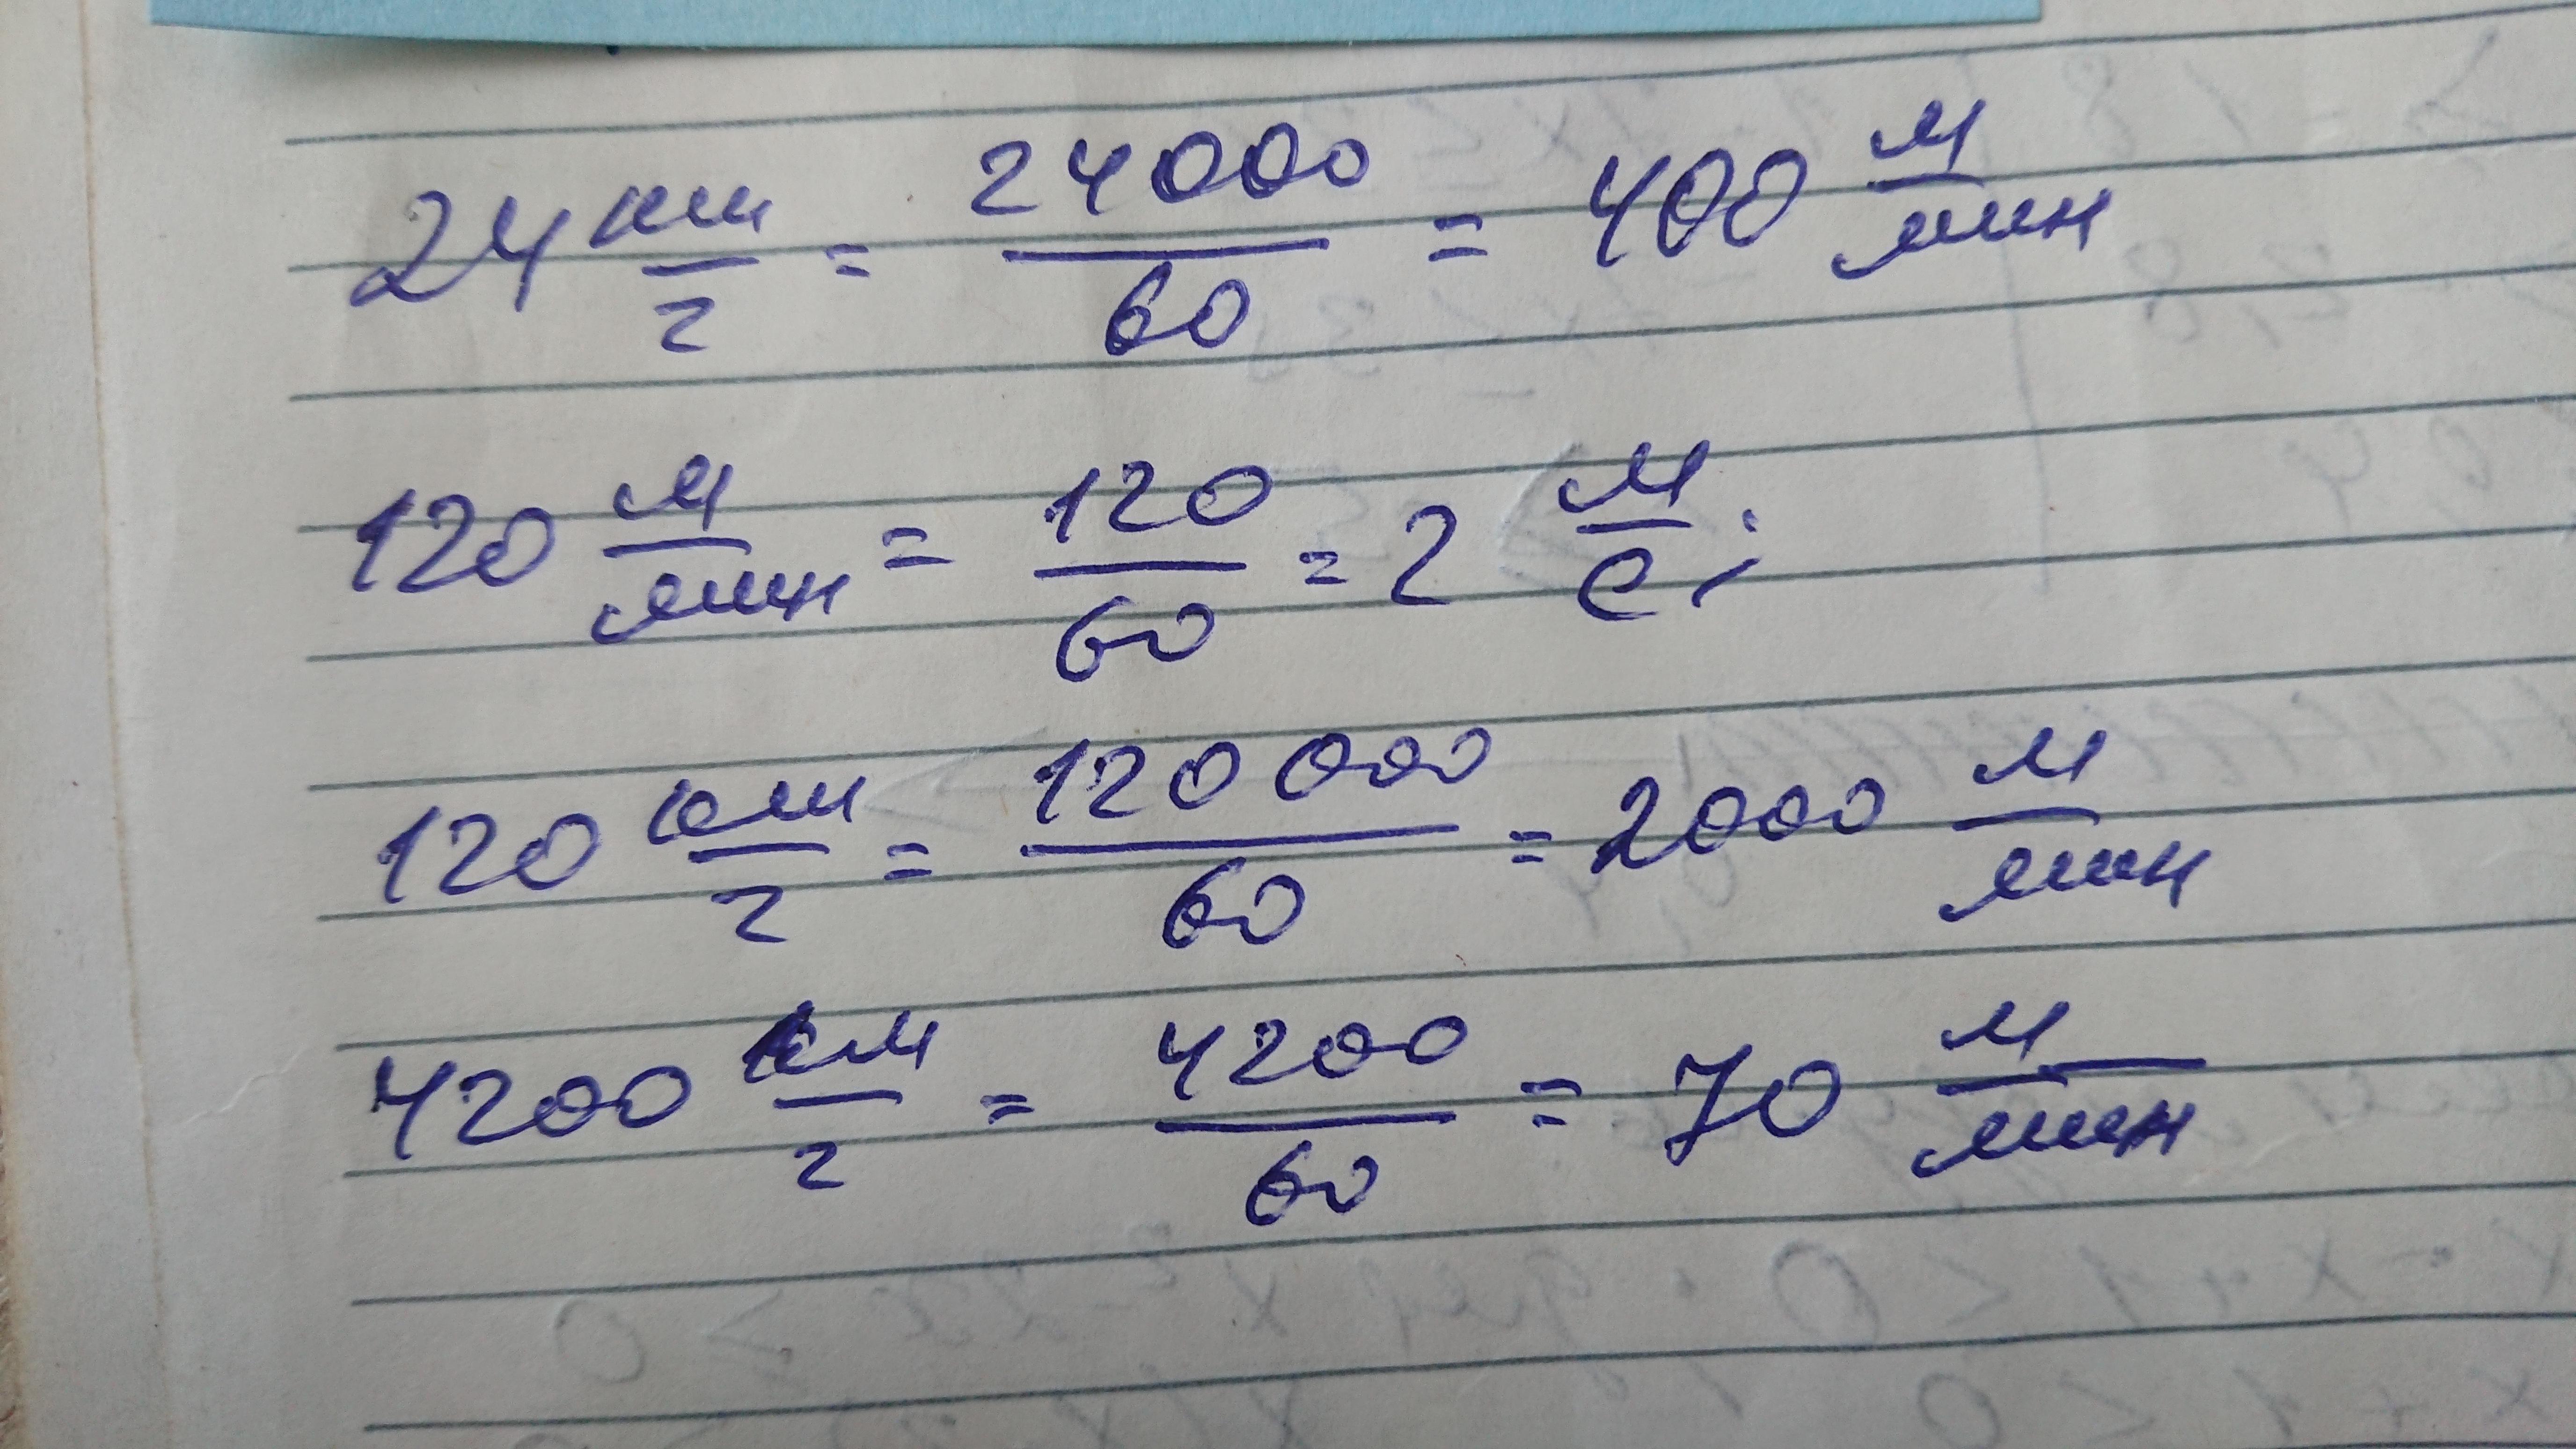 24 км/г = 24000/60 = 400 м/мин
120 м/мин = 120/60 = 2 м/с;
120 км/г = 120 000/60 = 2000 м/мин
4200 км/г = 4200/60 = 70 м/мин